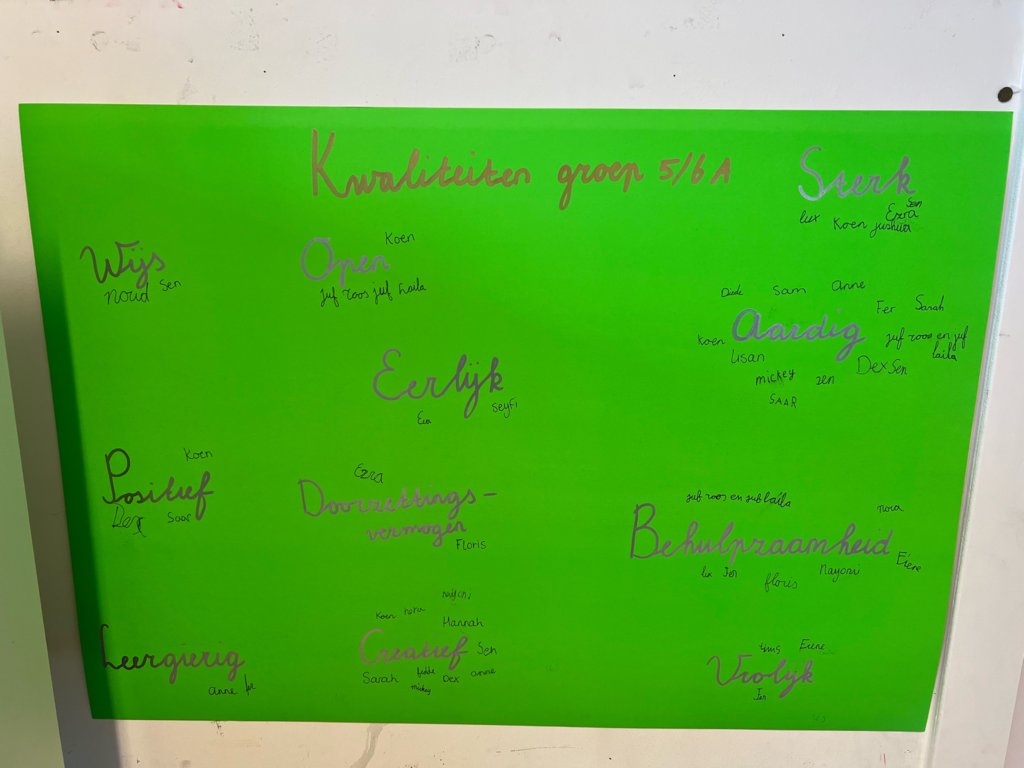 Kwaliteiten groep 5/6 A
Sterk
Sen
lux Koen Ezra
Joshua
Wijs
Noud Sen
Koen
Open
juf roos juf Laila
Sam Anne
Fer Sarah
Koen Aardig juf roos en juf
laila
Lisan
Dex Sen
mickey zen
SAAR
Eerlijk
Seyfi
Koen
Positief
Dex Saar
Ezra
Doorzettings-
vermogen
Floris
juf roos en juf Laila
nora
Behulpzaamheid
lux Fer floris Nayomi
Leergierig
anne
Koen nora
Hannah
Creatief Sen
Sarah Dex anne
mickey
Vrolijk
Fer